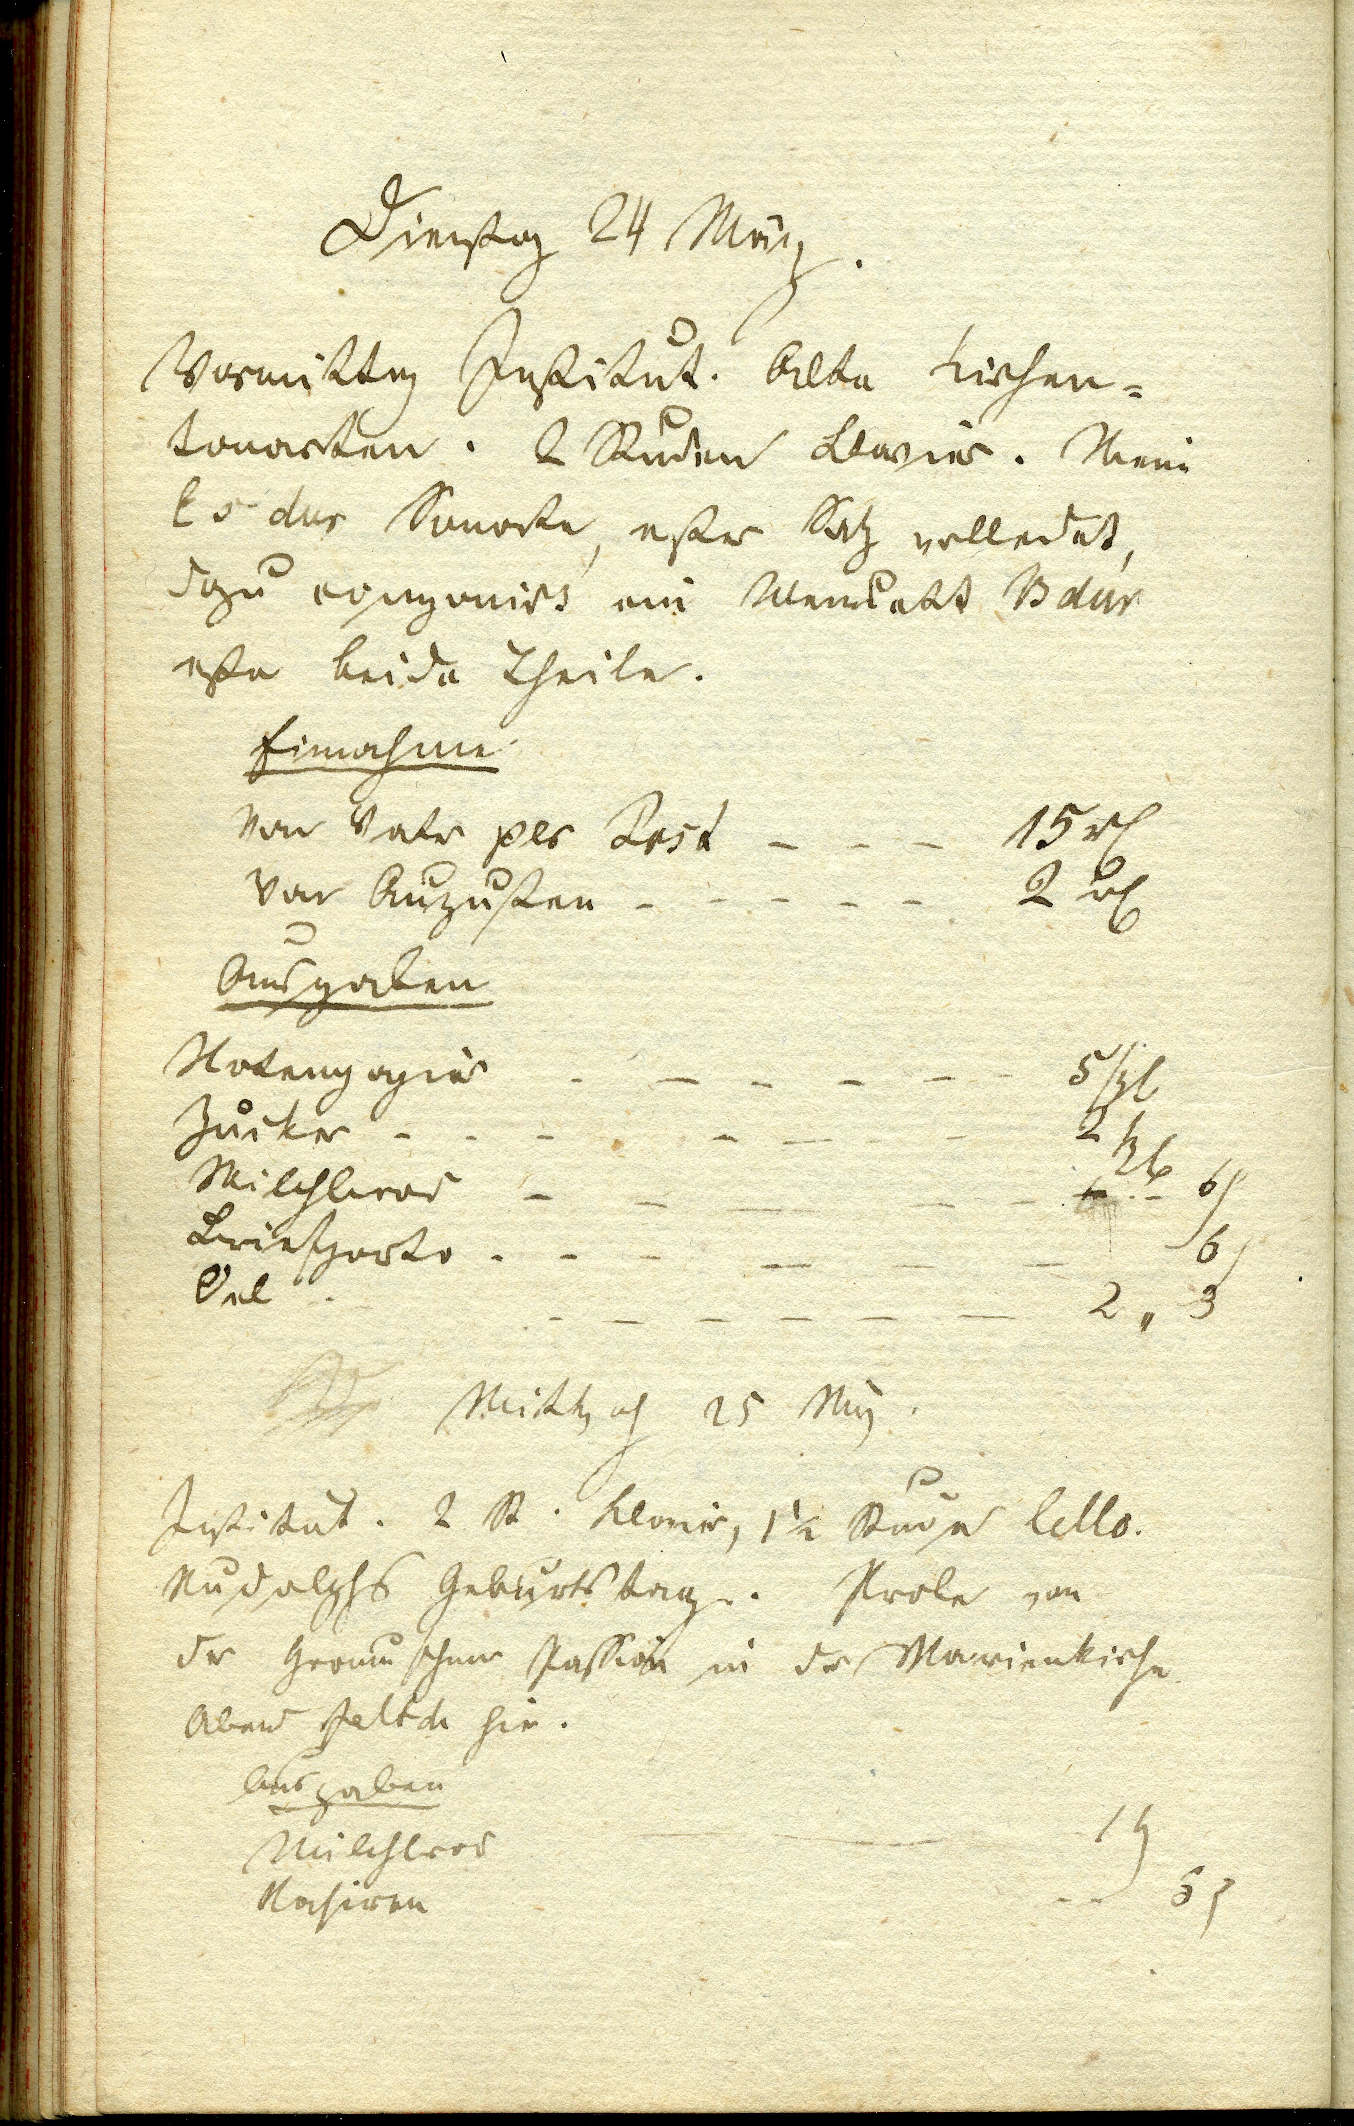 Dienstag 24 März.
Vormittag Institut. Alte Kirchen=
tonarten. 2 Stunden Klavier. Meine
Es dur Sonate, erster Satz vollendet,
dazu componirt ein Menuett B dur
erste beide Theile.
Einnahme
Von Vater per Post - - - 15 rℓ
Von Augusten - - - - - 2 rℓ
Ausgaben
Notenpapier - - - - - - 5 sgl
Zucker - - - - - - 2 sgl
Milchbrod - - - - - - - 6 ₰
Briefporto - - - - - - 6 ₰
Oel - - - - - - - 2 " 3
Mittwoch 25 März.
Institut. 2 St. Klavier, 1½ Stunde Cello.
Rudolphs Geburtstag. Probe von
der Graunschen Passion in der Marienkirche
Abend hier.
Ausgaben
Milchbrod 1
Rasiren - - 6 ₰